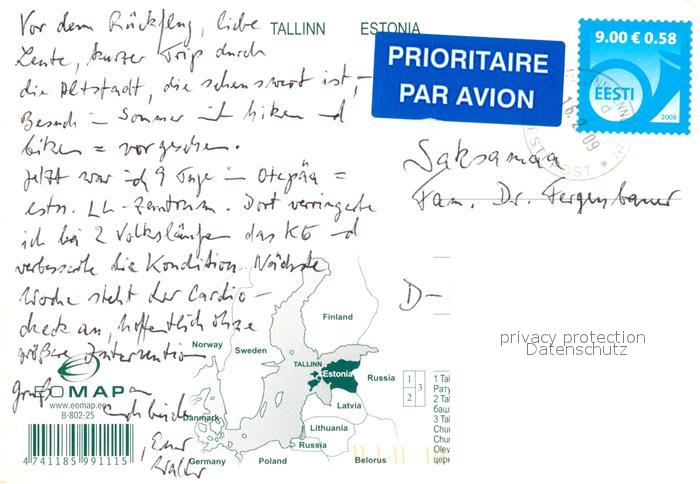 Vor dem Rückflug, liebe
Leute, kurzer Trip durch
die Altstadt, die sehenswert ist,
Besuch im Sommer mit hiken und
biken = vorgesehen.
Jetzt war ich 9 Tage in Otepää =
estn. LL-Zentrum. Dort verringerte
ich bei 2 Volksläufen das KG und
verbesserte die Kondition. Nächste
Woche steht der Cardio-
check an, hoffentlich ohne
größere Intervention
Gruß an
euch beide
, Euer
Walter
TALLINN ESTONIA
PRIORITAIRE
PAR AVION
9.00 € 0.58
EESTI
2008
16.2.09
EESTI POST
Saksamaa
Fam. Dr. Fergenbauer
D-
privacy protection
Datenschutz
EOMAP
www.eomap.ee
B-802-25
4 741185 991115
Finland
Norway
Sweden
TALLINN
Estonia
Russia
Latvia
Lithuania
Russia
Denmark
Germany
Poland
Belorus
1
2
3
1 Tal
Рату
2 Tal
баш
3 Tal
Chur
Chur
Chur
Olev
церк